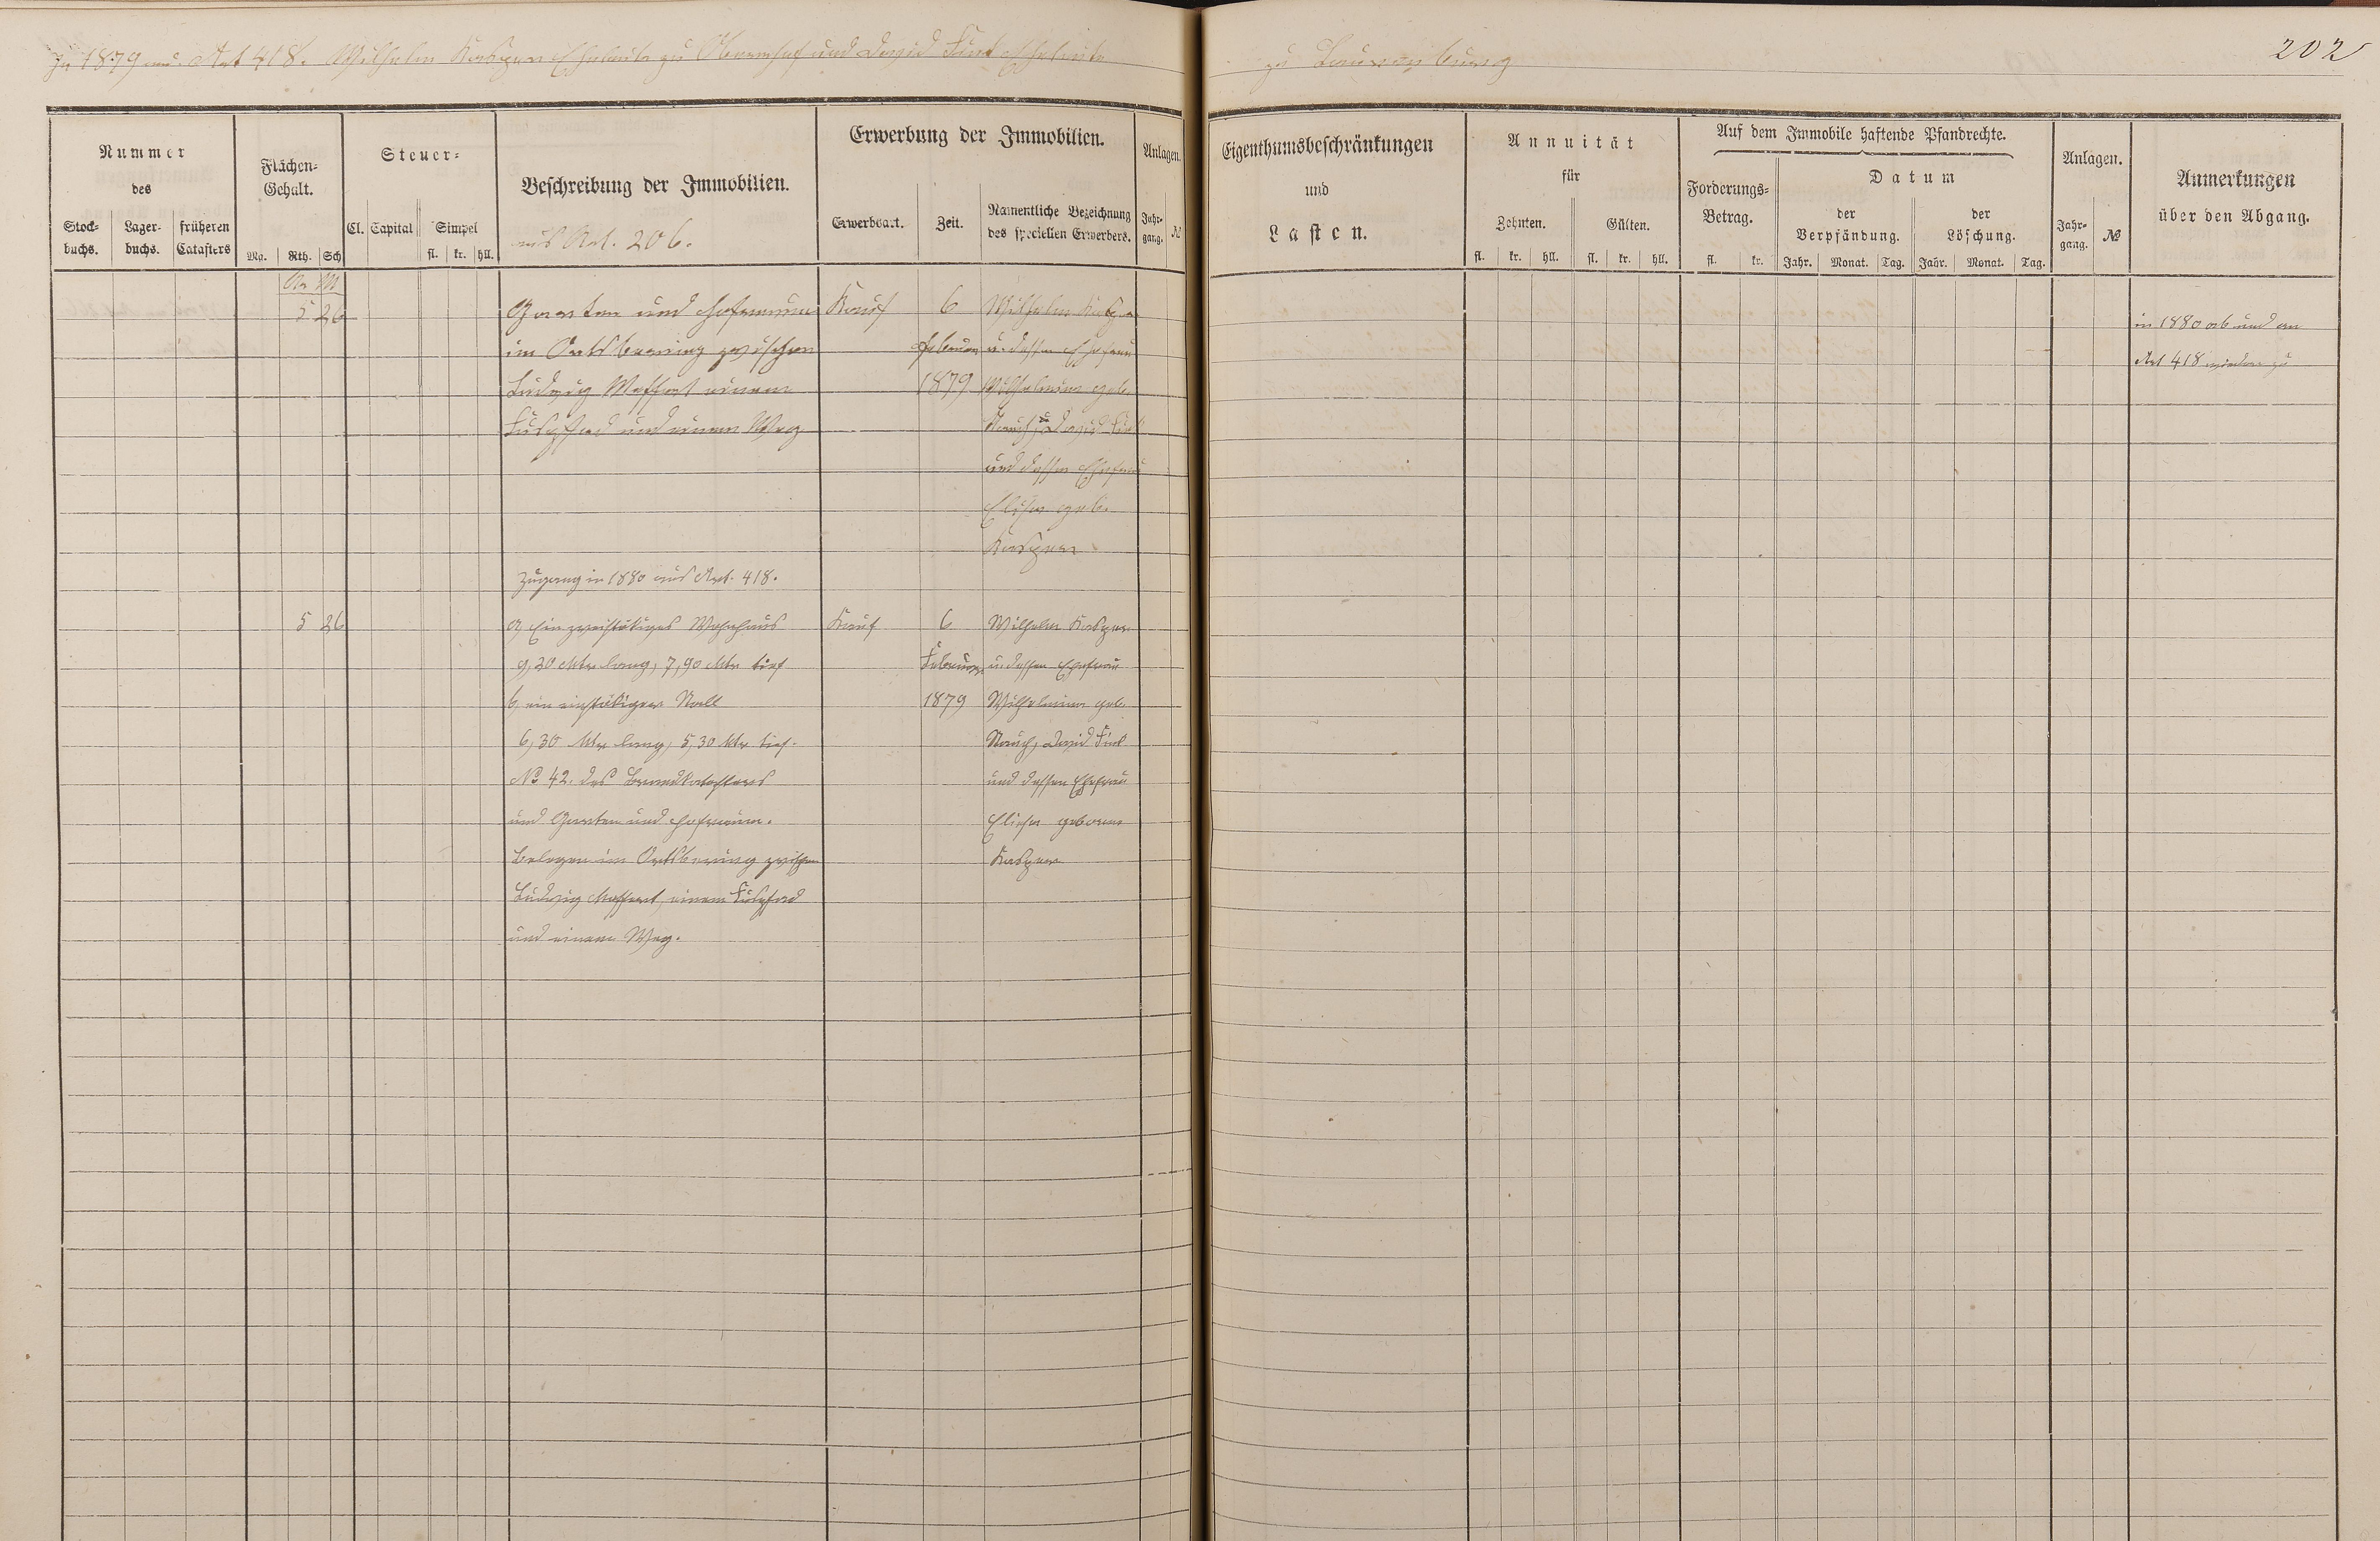 In 1879 neu. Art 418. Wilhelm Kasper Eheleute zu Obernhof und David Eheleute zu Laurenburg
202
Nummer
des
Stock-
buchs.
Lager-
buchs.
früheren
Catasters
Flächen-
Gehalt.
Mo.
Rth.
Sch
Steuer-
Cl.
Capital
Simpel
fl.
kr.
hll.
Beschreibung der Immobilien.
aus Art. 206.
Erwerbung der Immobilien.
Erwerbsart.
Zeit.
Namentliche Bezeichnung
des speciellen Erwerbers.
Anlagen.
Jahr-
gang.
№
Eigenthumsbeschränkungen
und
Lasten.
Annuität
für
Zehnten.
fl.
kr.
hll.
Gülten.
fl.
kr.
hll.
Auf dem Immobile haftende Pfandrechte.
Forderungs-
Betrag.
fl.
kr.
Datum
der
Verpfändung.
Jahr.
Monat.
Tag.
der
Löschung.
Jahr.
Monat.
Tag.
Anlagen.
Jahr-
gang.
№
Anmerkungen
über den Abgang.
Ar M
5 26 Garten und Hofraum Kauf 6 Wilhelm Kasper
im Ortsbering zwischen Februar u. dessen Ehefrau
Ludwig Maffert einem 1879 Wilhelmine geb.
Fußpfad und einem Weg Rauch, u David
und dessen Ehefrau
Elise geb.
Kasper
in 1880 ab und an
Art 418 wieder zu
Zugang in 1880 aus Art. 418.
5 26 a, Ein zweistökiges Wohnhaus Kauf 6 Wilhelm Kasper
9,20 Mtr lang, 7,90 Mtr tief Februar u. dessen Ehefrau
b, ein einstökiger Stall 1879 Wilhelmine geb.
6,30 Mtr lang, 5,30 Mtr tief. Rauch, David
No 42. des Brandkatasters und dessen Ehefrau
und Garten und Hofraum. Elise geborene
Belegen im Ortsbering zwischen Kasper
Ludwig Maffert, einem Fußpfad
und einem Weg.